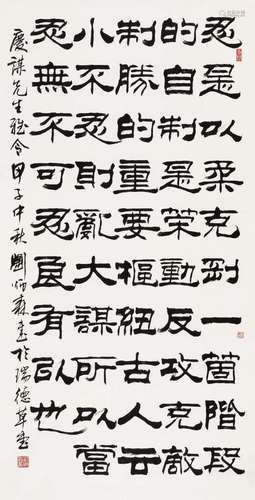 忍是以柔克剛一箇階段
的自制是策動反攻克敵
制勝的重要樞紐古人云
小不忍則亂大謀所以當
忍無不可忍良有以也
慶謀先生雅令甲子中秋師森書於瑞德草堂